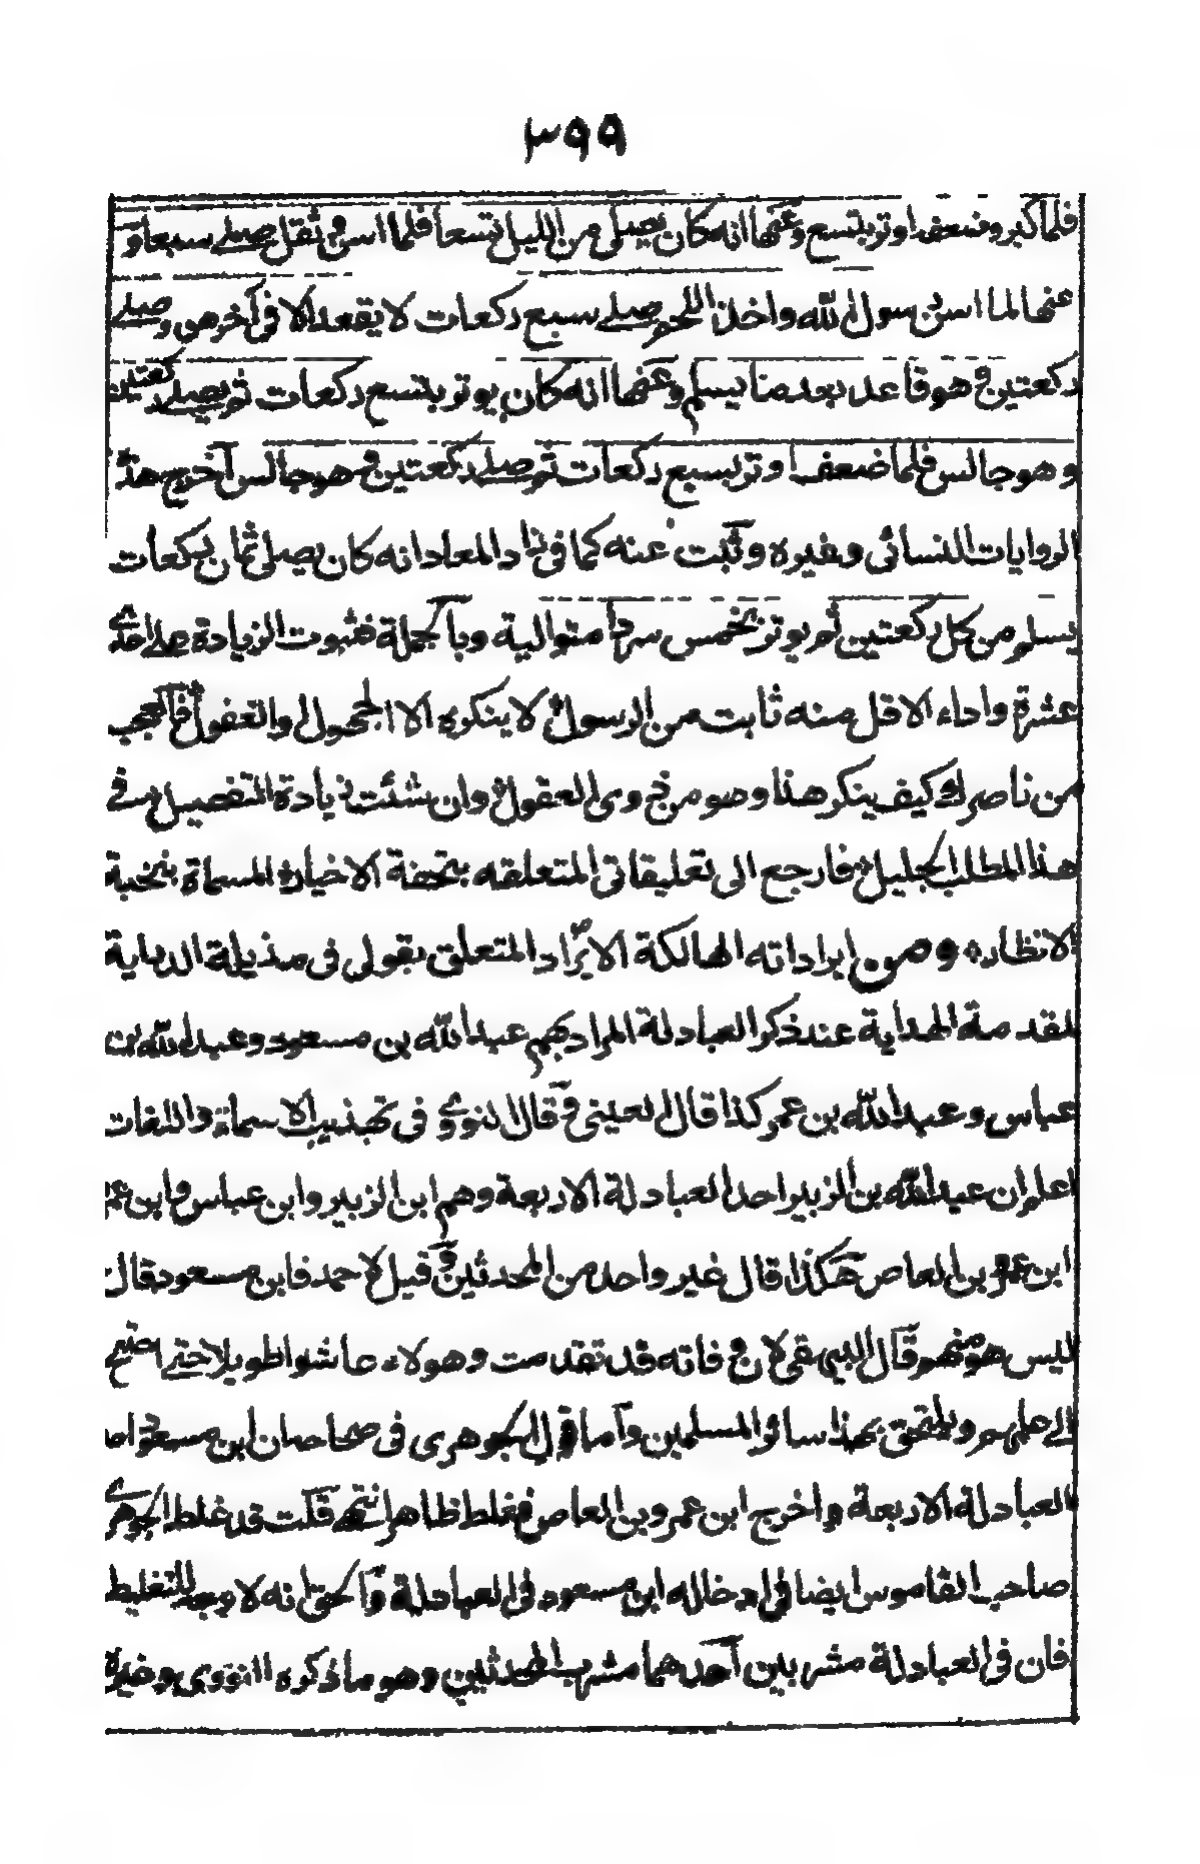 ٣٩٩
فلما كبر وضعف اوتر بتسع وعنها انه كان يصلى من الليل تسعا فلما اسن و ثقل صلى سبعا و
عنها لما اسن رسول الله واخذ اللحم صلى سبع ركعات لا يقعد الا فى آخرهن وصلى
ركعتين و هو قاعد بعد ما يسلم وعنها انه كان يوتر بتسع ركعات ثم يصلى ركعتين
وهو جالس فلما ضعف اوتر بسبع ركعات ثم صلى ركعتين و هو جالس آخرج هذه
الروايات النسائى وغيره وثبت عنه كما فى زاد المعاد انه كان يصلى ثمان ركعات
يسلم من كل ركعتين ثم يوتر بخمس سردا متوالية وبالجملة فثبوت الزيادة على احدى
عشرة واداء الاقل منه ثابت من الرسول لا ينكره الا الجهول والغفول فالعجب
من ناصرك كيف ينكر هذا وهو من ذوى العقول وان شئت زيادة التفصيل فى
هذا المطلب الجليل فارجع الى تعليقاتى المتعلقه بتحفة الاخيار المسماة بنخبة
الانظار ومن ايراداته الهالكة الايراد المتعلق بقولى فى مذيلة الدراية
لمقدمة الهداية عند ذكر العبادلة المراد بهم عبد الله بن مسعود وعبد الله بن
عباس وعبد الله بن عمر كذا قال العينى و قال النووى فى تهذيب الاسماء واللغات
اعلم ان عبد الله بن الزبير احد العبادلة الاربعة وهم ابن الزبير وابن عباس وابن عمر
ابن عمرو بن العاص هكذا قال غير واحد من المحدثين و قيل لاحمد فابن مسعود قال
ليس هو منهم قال البيهقى لان فاته قد تقدمت وهولاء عاشوا طويلا حتى احتيج
الى علمهم ويلتحق بهذا سائر المسلمين وآما قول الجوهرى فى صحاحه ان ابن مسعود احد
العبادلة الاربعة واخرج ابن عمرو بن العاص فغلط ظاهر انتهى قلت قد غلط الجوهرى
صاحب القاموس ايضا فى ادخاله ابن مسعود فى العبادلة وآلحق انه لا وجه للتغليط
فان فى العبادلة مشربين آحدهما مشرب المحدثين وهو ما ذكره النووى وغيره